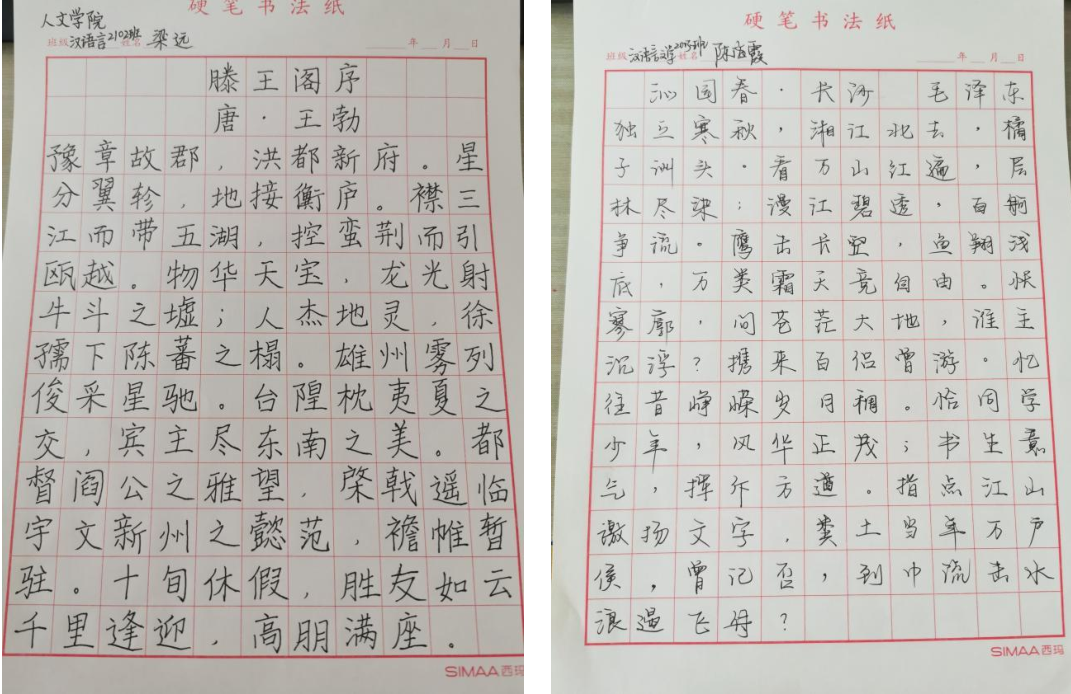 硬笔书法纸
人文学院
班级 汉语言2102班 姓名 梁远 年 月 日
滕王阁序
唐·王勃
豫章故郡，洪都新府。星
分翼轸，地接衡庐。襟三
江而带五湖，控蛮荆而引
瓯越。物华天宝，龙光射
牛斗之墟；人杰地灵，徐
孺下陈蕃之榻。雄州雾列
俊采星驰。台隍枕夷夏之
交，宾主尽东南之美。都
督阎公之雅望，棨戟遥临
宇文新州之懿范，襜帷暂
驻。十旬休假，胜友如云
千里逢迎，高朋满座。
SIMAA西玛
硬笔书法纸
班级 汉语言文学 姓名 年 月 日
沁园春·长沙 毛泽东
独立寒秋，湘江北去，橘
子洲头。看万山红遍，层
林尽染；漫江碧透，百舸
争流。鹰击长空，鱼翔浅
底，万类霜天竞自由。怅
寥廓，问苍茫大地，谁主
沉浮？携来百侣曾游。忆
往昔峥嵘岁月稠。恰同学
少年，风华正茂；书生意
气，挥斥方遒。指点江山
激扬文字，粪土当年万户
侯，曾记否，到中流击水
浪遏飞舟？
SIMAA西玛